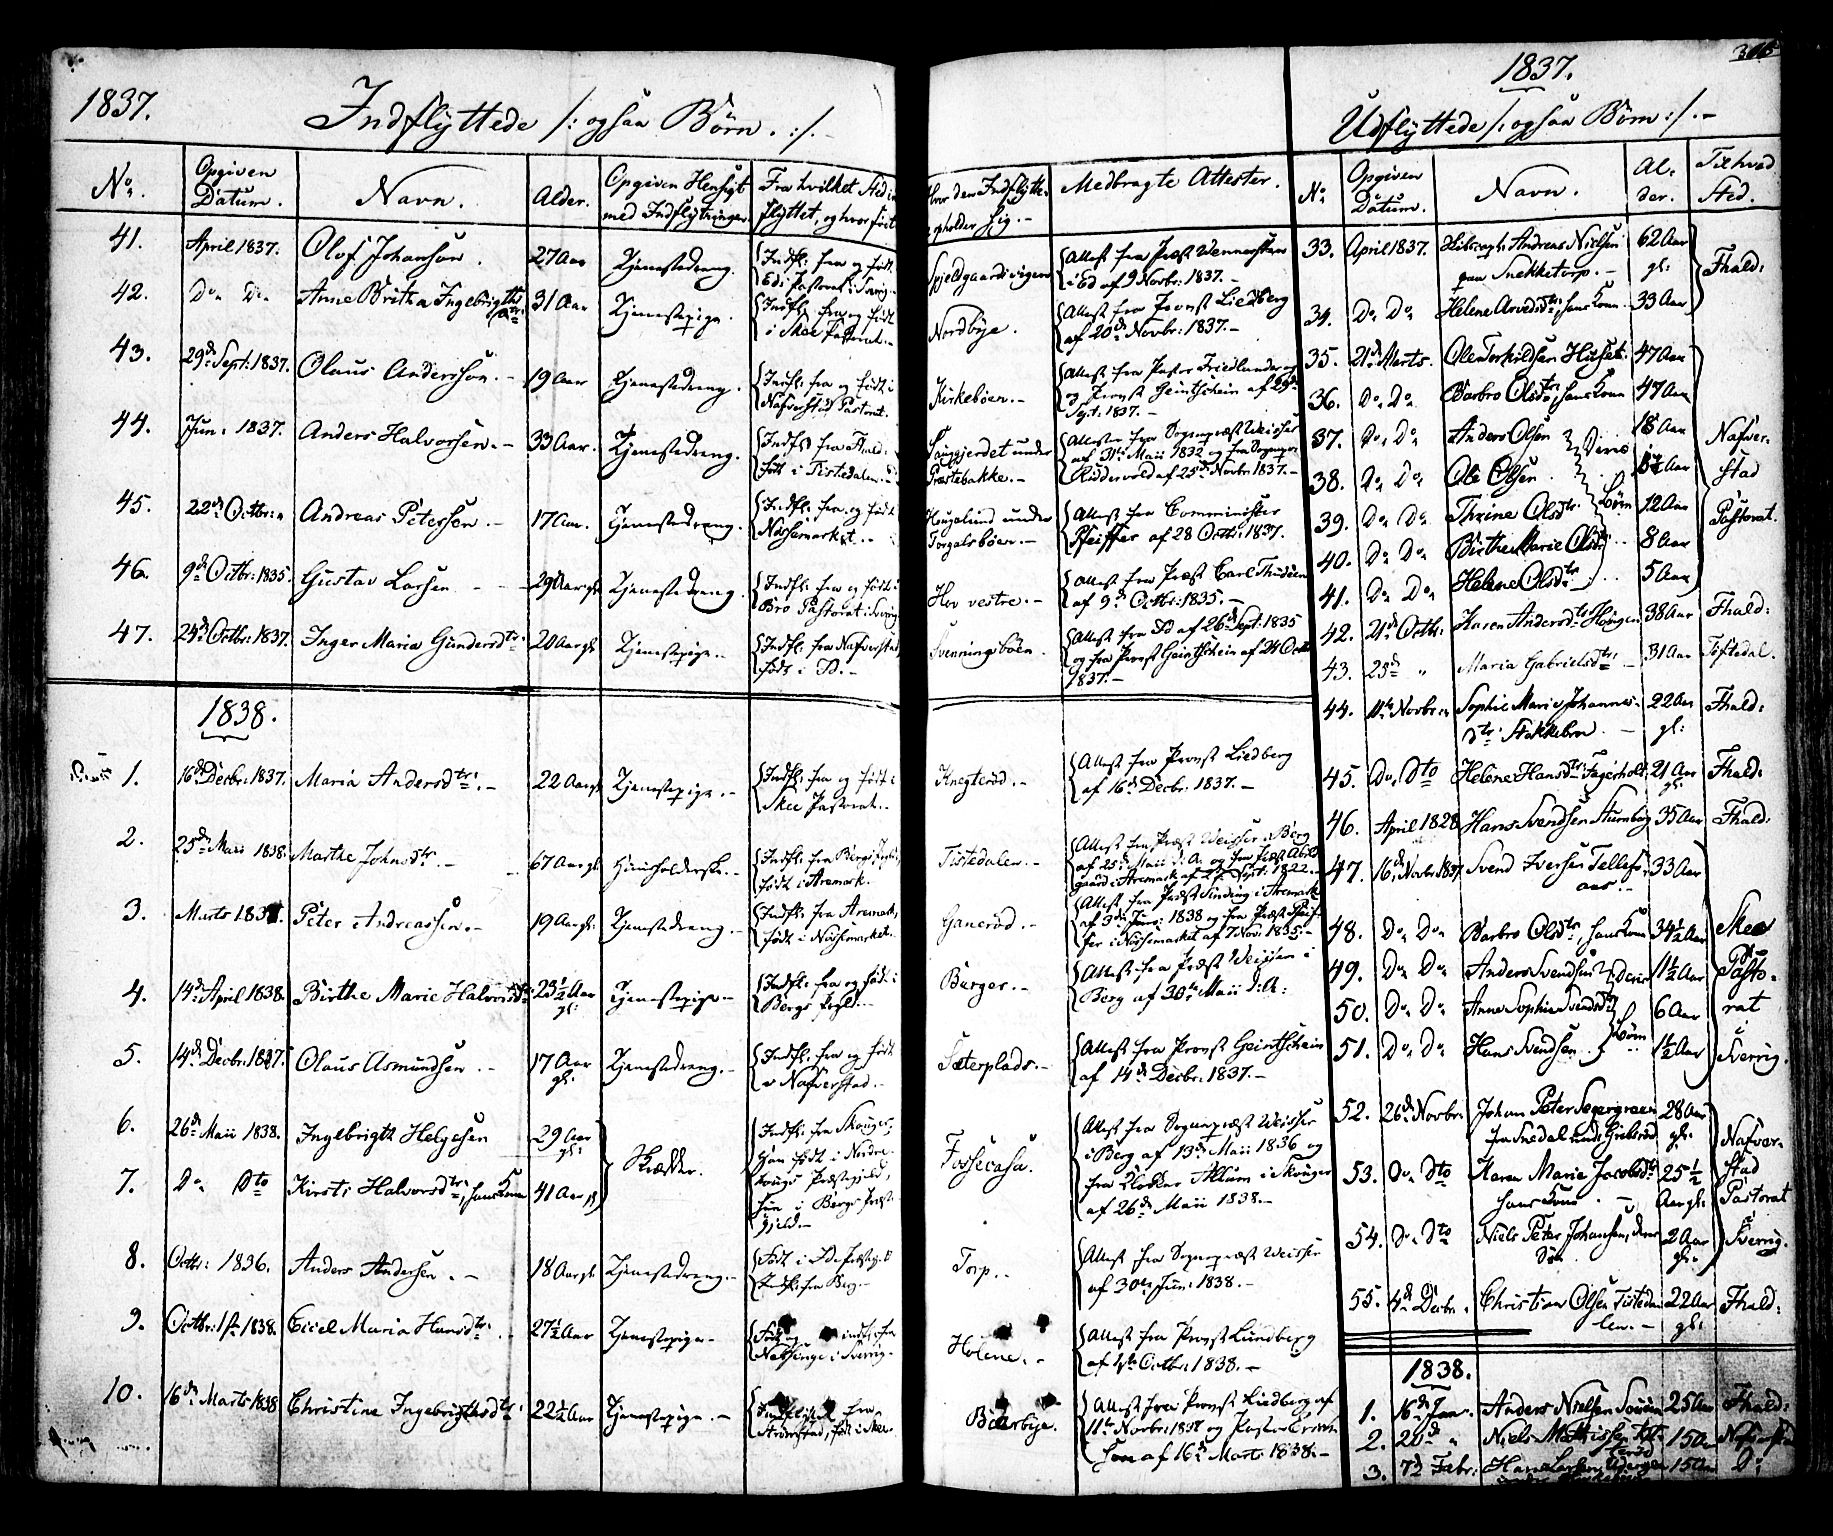 1837.
Indflyttede /: ogsaa Børn. :/. -
No.
Opgiven Datum.
Navn.
Alder.
Opgiven Hensigt med Indflytningen
Fra hvilket Sted indflyttet, og hvor født
Hvor den Indflytte opholder sig. -
Medbragte Attester.
41. April 1837. Olof Johanson. 27 Aar Tjenestedreng. Indfl: fra og født i Eds Pastorat i Sverig Spjeldgaardsvigen Attest fra Præst Wennersteen i Ed af 9 Novbr: 1837. -
42. Do Do Anne Britha Ingebrigtsdtr: 31 Aar Tjenestepige. Indfl: fra og født i Skee Pastorat. - Nordbye. Attest fra Provst Liedberg af 20de Novbr: 1837. -
43. 29de Sept: 1837. Olaus Andersson. - 19 Aar Tjenestedreng. Indfl: fra og født i Nafverstad Pastorat. Kirkebøen. - Attest fra Pastor Friedlander og Provst Geintschein af 29de Sept. 1837. -
44. Jun: 1837. Anders Halvorsen. - 33 Aar. Tjenestedreng. Indfl: fra Fhald: født i Tistedalen. - under Præstebakke. - Attester fra Sognepræst Weisser af 31te Maii 1832 og fra Sognepr: Riddervold af 25de Novbr: 1837. -
45. 22de Octbr: Andreas Petersen. - 17 Aar. Tjenestedreng. Indfl: fra og født Nössemarket. - Hugelund under Torgalsbøen. - Attest fra Comminister Pfeiffer af 28 Octb: 1837.
46. 9de Octbr: 1835. Gustav Larsen - 29 Aar gl: Tjenestedreng. Indfl: fra og født i Bro Pastorat i Sverig Hov vestre. - Attest fra Præst Carl Thudeen af 9de Octbr: 1835. -
47. 24de Octbr: 1837. Inger Maria Gundersdtr: 20 Aar gl: Tjenestepige. - Indfl: fra Nafverstad, født i Id. - Svenningsbøen. Attest fra Id af 26de Sept: 1835 og fra Provst Geintschein af 24 Octbr 1837. -
1838.
1. 16de Decbr: 1837. Maria Andersdtr: - 22 Aar gl: Tjenestepige. - Indfl: fra og født i Skee Pastorat. - Knegterød. - Attest fra Provst Liedberg af 16de Decbr: 1837. -
2. 25de Maii 1838. Marthe Johnsdtr. - 67 Aar gl: Huusholderske. - Indfl: fra Bergs født i Aremark. Tistedalen. - Attest fra Præst Weisser i Berg af 25de Maii d: A. og fra Præst i Aremark af 22 Sept: 1822. -
3. Marts 1838. Peter Andreassen. - 19 Aar gl: Tjenestedreng. - Indfl: fra Aremark, født i Nössemarket. Ganerød. - Attest fra Præst Sinding i Aremark af 3de Jun: 1838 og fra Præst Pfeiffer i Nössemarket af 7 Nov: 1835. -
4. 14de April 1838. Birthe Marie Halvorsdtr 23½ Aar gl: Tjenestepige. - Indfl: fra og født i Bergs Prgld. - Burger. - Attest fra Præst Weisser i Berg af 30te Maii d: A: -
5. 14de Decbr: 1837. Olaus Asmundsen. - 17 Aar gl: Tjenestedreng. - Indfl: fra og født i Nafverstad. - Sæterplads. - Attest fra Provst Geintschein af 14de Decbr: 1837. -
6. 26de Maii 1838. Ingelbrigth Helgesen 29 Aar gl: Skrædder. Indfl: fra Skouger, han født i Nordre Fossecasa. Attest fra Sognepræst Weisser i Berg af 13de Maii 1836 og
7. Do Dto Kirsti Halvorsdtr:, hans Kone 41 Aar gl: Præstegield, hun i Bergs Præstegjeld. - fra Klokker Allum i Skouger af 26de Maii 1838. -
8. Octbr: 1836. Anders Andersen. - 18 Aar gl: Tjenestedreng. - Født i Id Indfl: fra Berg. - Torp. - Attest fra Sognepræst Weisser af 30te Jun: 1838. -
9. Octbr: 1ste 1838. Maria Hansdtr: 27½ Aar Tjenestepige. - i Sverig. - Holene. - Attest fra Provst Lundberg af Octbr: 1838. -
10. 16de Marts 1838 Christine Ingebrigtsdtr: 22½ Aar Tjenestepige. - Indflyttet fra født i Skee. Bøerbye. Attest fra Provst Liedberg af 11te Novbr: 1837 og Pastor af 16de Mart: 1838. -
1837.
Udflyttede /: ogsaa Børn :/. -
No
Opgiven Datum.
Navn.
Alder.
Til hvad Sted.
33. April 1837. Andreas Nielsen paa Snekketorp. - 62 Aar gl: Fhald:
34. Do Do Helene Arvedsdtr:, hans Kone. 33 Aar
35. 21de Marts. Ole Torkildsen Huset. 47 Aar Nafverstad Pastorat.
36. Do Do Barbro Olsdtr, hans Kone 47 Aar
37. Do Do Anders Olsen 18 Aar
38. Do Do Ole Olsen Aar
39. Do Do Thrine Olsdtr 12 Aar
40. Do Do Birthe Marie Olsdtr 8 Aar
41. Do Do Helene Olsdtr 5 Aar
Deres Børn
42. 21de Octbr: Karen Andersdtr: 38 Aar Fhald:
43. 25de " Maria Gabrielsdtr: - 31 Aar Tistedal.
44. 11te Novbr: Sophie Marie Johannesdtr: Stokkebroe. - 22 Aar gl: Fhald:
45. Do Dto Helene Hansdtr: Fagerholt. 21 Aar gl: Fhald:
46. April 1828 Hans Svendsen 35 Aar Fhald:
47. 16de Novbr: 1837. Svend Iversen Tellefsaas. - 33 Aar Skee Pastorat i Sverrig.
48. Do Do Barbro Olsdtr, hans Kone 34½ Aar
49. Do Do Anders Svendsen 11½ Aar
50. Do Do Anne Sophie Svendsdtr 6 Aar
51. Do Do Hans Svendsen 1½ Aar
Deres Børn
52. 26de Novbr: Johan Peter Segergreen 28 Aar gl: Nafverstad Pastorat i Sverrig.
53. Do Dto Karen Marie Jacobsdtr hans Kone - 25½ Aar gl:
54. Do Dto Niels Peter Johansen, deres Søn 2 Aar gl:
55. 4de Decbr: Christian Olsen Tistedalen. - 22 Aar gl: Fhald:
1838.
1. 16de Jan: Anders Nielsen 25 Aar Fhald:
2. 20de " Niels Mathissen 15 Aar
3. 7de Febr: Hans Larsen 15 Aar Do